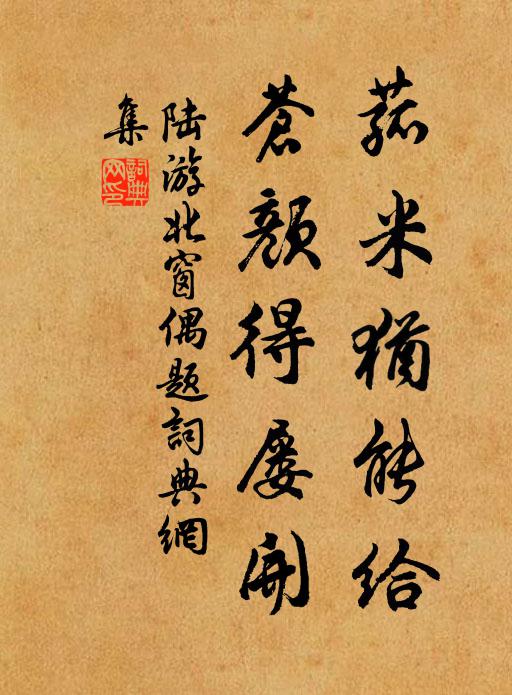 菰米猶能給
蒼顏得屡開
陆游北窗偶题詞典網
集
詞典
网印